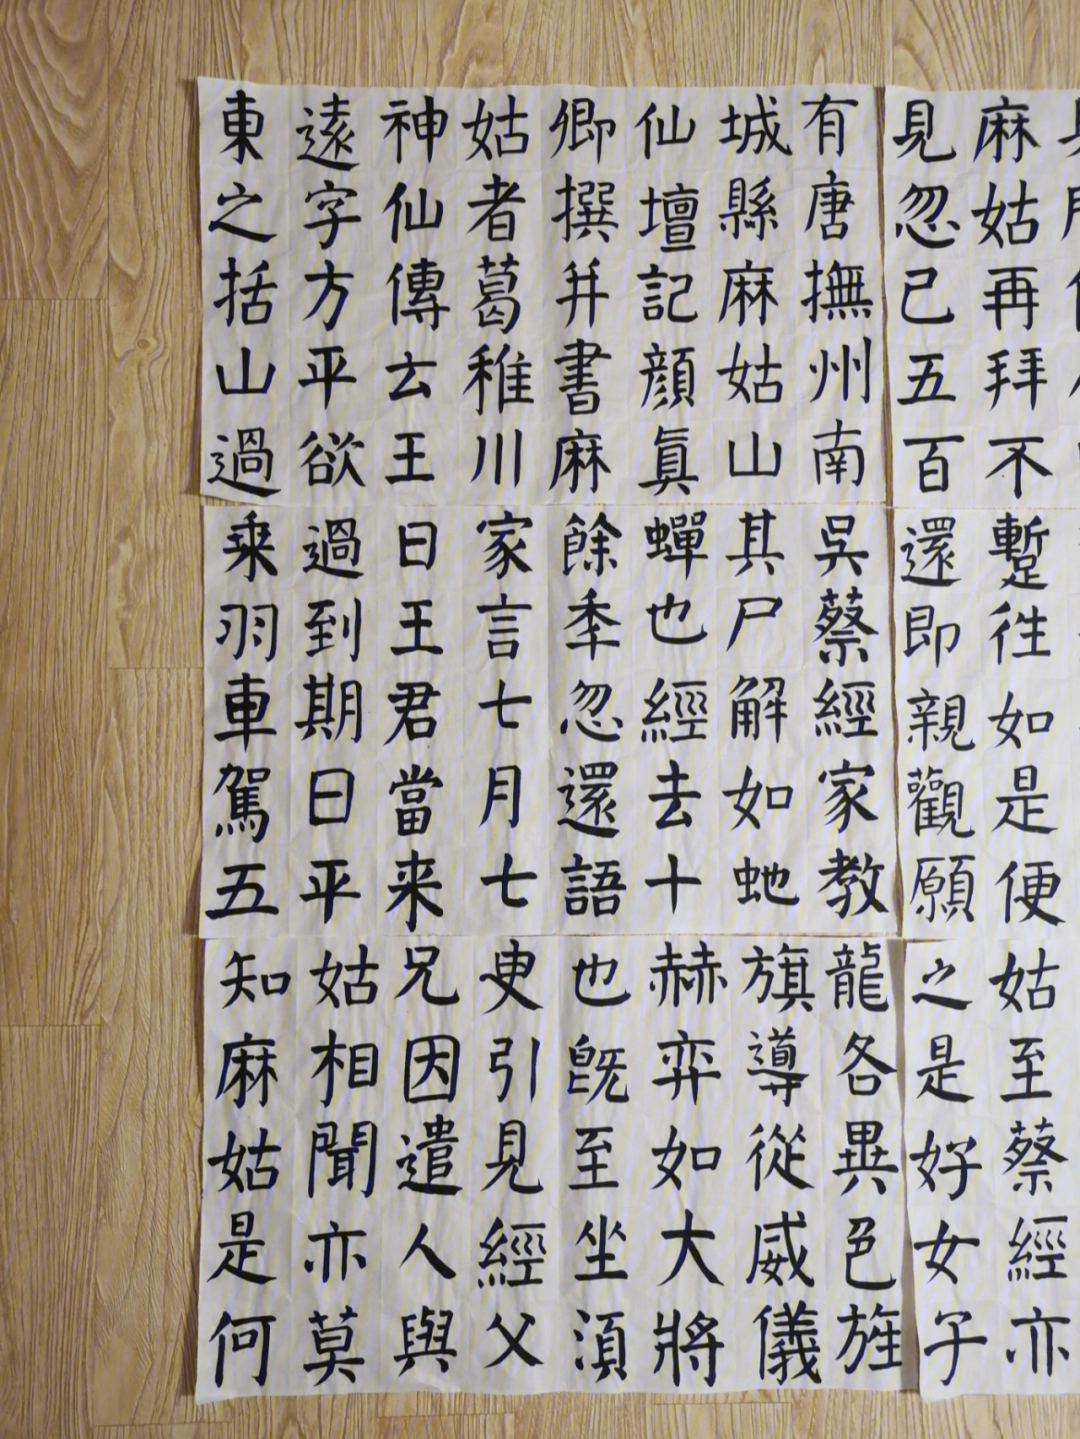 有唐撫州南
城縣麻姑山
仙壇記顏眞
卿撰并書麻
姑者葛稚川
神仙傳云王
遠字方平欲
東之括山過
吳蔡經家教
其尸解如虵
蟬也經去十
餘秊忽還語
家言七月七
日王君當来
過到期日平
乗羽車駕五
龍各異色旌
旗導從威儀
赫弈如大將
也既至坐須
臾引見經父
兄因遣人與
姑相聞亦莫
知麻姑是何
麻姑再拜不
見忽已五百
蹔徃如是便
還即親觀願
姑至蔡經亦
之是好女子